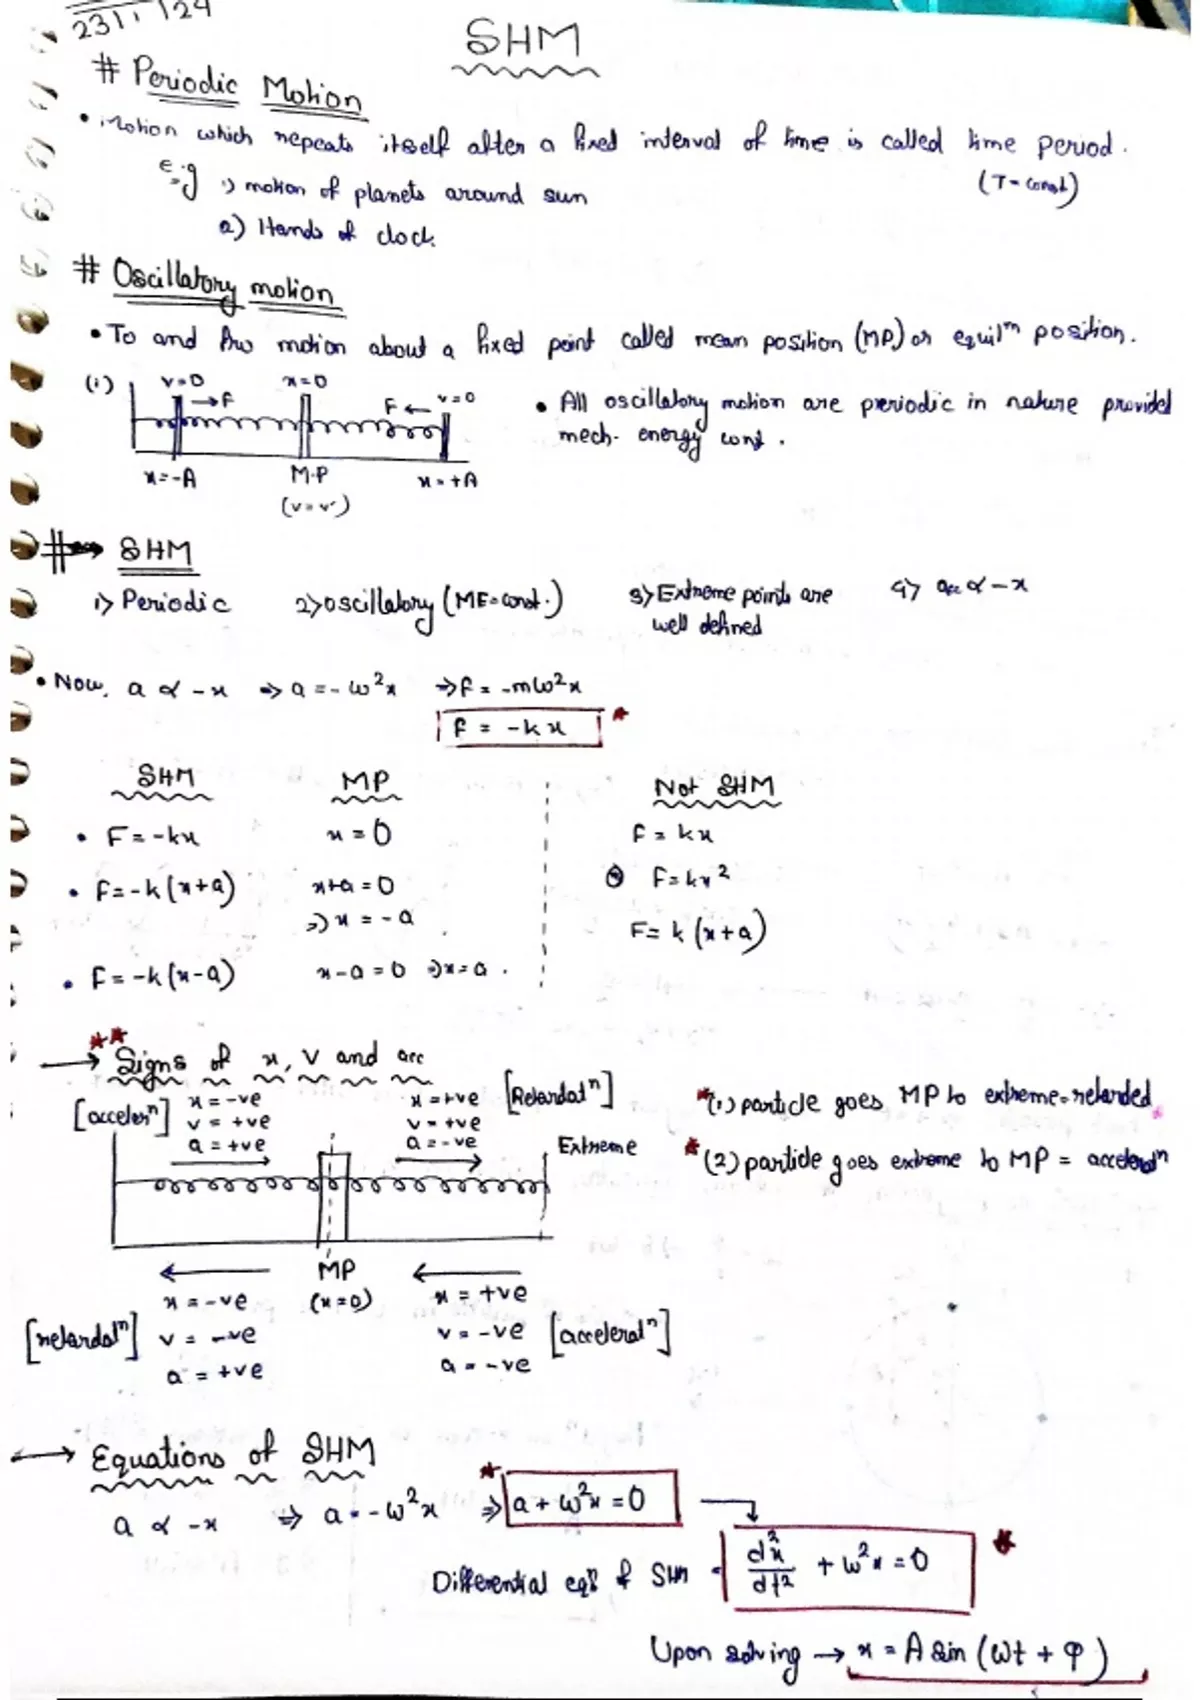 23111124
SHM
# Periodic Motion
• Motion which repeats itself after a fixed interval of time is called time period.
(T = const)
e.g 1) motion of planets around sun
2) Hands of clock.
# Oscillatory motion
• To and fro motion about a fixed point called mean position (MP) or equilᵐ position.
(i) v=0 x=0
→F F← v=0
x=-A M.P x=+A
(v=v)
• All oscillatory motion are periodic in nature provided
mech. energy const.
#→ SHM
1) Periodic 2) oscillatory (ME=const.) 3) Extreme points are 4) acc ∝ -x
well defined
• Now, a ∝ -x ⇒ a = -ω²x ⇒ F = -mω²x
F = -kx
SHM MP Not SHM
• F = -kx x = 0 F = kx
• F = -k(x+a) x+a = 0 F = kx²
⇒ x = -a F = k(x+a)
• F = -k(x-a) x-a = 0 ⇒ x = a.
→ Signs of x, v and acc
[accelerⁿ] x = -ve x = +ve [Retardatⁿ]
v = +ve v = +ve
a = +ve a = -ve Extreme
(1) particle goes MP to extreme = retarded
(2) particle goes extreme to MP = acceleratⁿ
← MP ←
x = -ve (x=0) x = +ve
[retardatⁿ] v = -ve v = -ve [acceleratⁿ]
a = +ve a = -ve
→ Equations of SHM
a ∝ -x ⇒ a = -ω²x ⇒ a + ω²x = 0
Differential eqⁿ of SHM = d²x/dt² + ω²x = 0
Upon solving → x = A sin (ωt + φ)